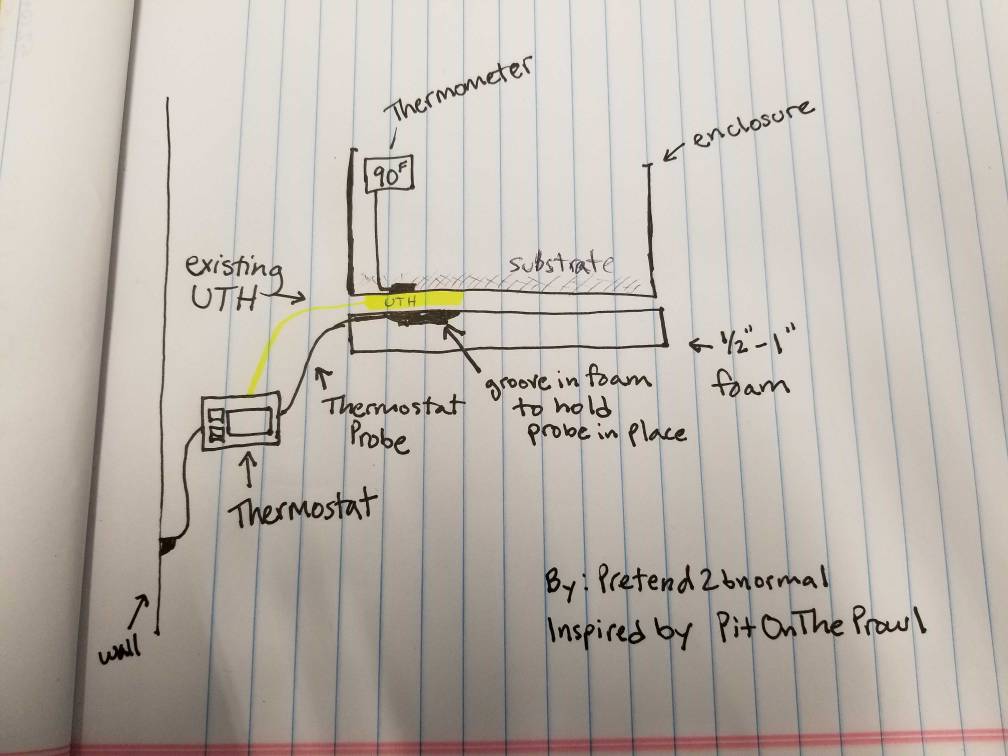 Thermometer
enclosure
90F
substrate
existing
UTH
UTH
1/2"-1"
foam
groove in foam
to hold
probe in place
Thermostat
Probe
Thermostat
By: Pretend2bnormal
Inspired by PitOnTheProwl
wall